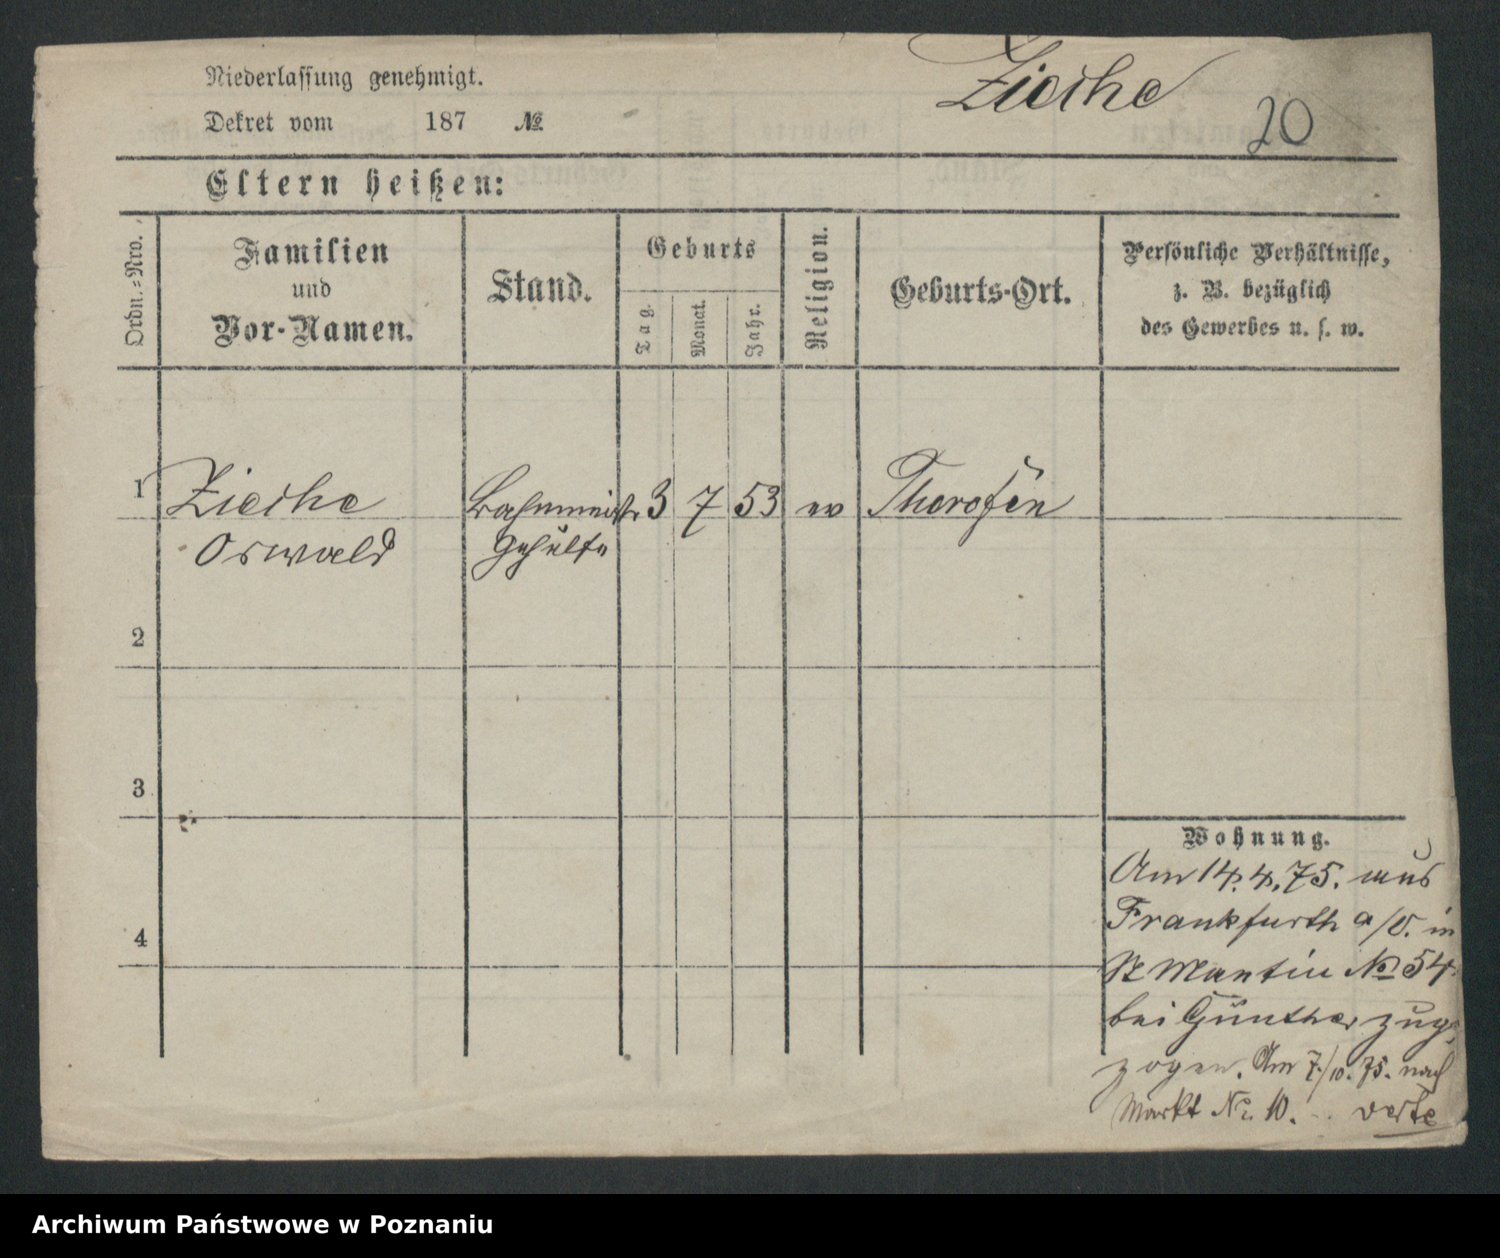 Niederlassung genehmigt.
Ziesche
20
Dekret vom 187 №
Eltern heißen:
Ordn.-Nro.
Familien
und
Vor-Namen.
Stand.
Geburts
Tag.
Monat.
Jahr.
Religion.
Geburts-Ort.
Persönliche Verhältnisse,
z. B. bezüglich
des Gewerbes u. s. w.
1 Ziesche Bahnmeister 3 7 53 ev
Oswald Gehülfe
2
3
4
Wohnung.
Am 14.4.75. aus
Frankfurth a/O. in
St Martin № 54
bei Günther zuge
zogen. Am 7./10. 75. nach
Markt No. 10. verte
Archiwum Państwowe w Poznaniu